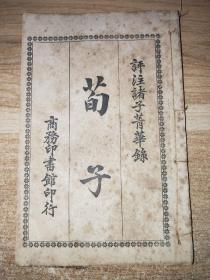 評注諸子菁華錄
荀子
商務印書館印行